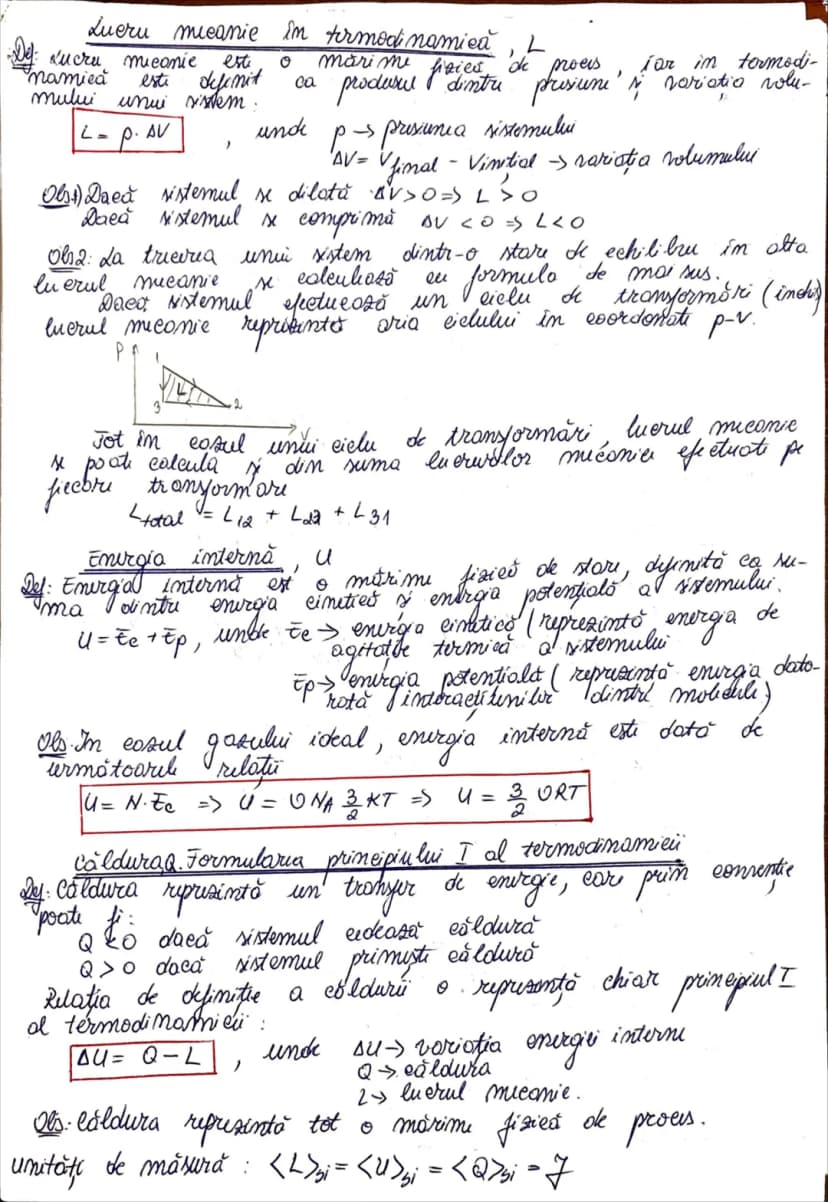 Lucru mecanic în termodinamică, L
Def: Lucru mecanic este o mărime fizică de proces, iar în termodi-
namică este definit ca produsul dintre presiune și variația volu-
mului unui sistem.
L = p · ΔV , unde p → presiunea sistemului
ΔV = Vfinal - Vinițial → variația volumului
Obs1) Dacă sistemul se dilată ΔV > 0 => L > 0
Dacă sistemul se comprimă ΔV < 0 => L < 0
Obs2: La trecerea unui sistem dintr-o stare de echilibru în alta
lucrul mecanic se calculează cu formula de mai sus.
Dacă sistemul efectuează un ciclu de transformări (închis)
lucrul mecanic reprezintă aria ciclului în coordonate p-V.
p
1
L
3 2
V
Tot în cazul unui ciclu de transformări, lucrul mecanic
se poate calcula și din suma lucrurilor mecanice efectuate pe
fiecare transformare
Ltotal = L12 + L23 + L31
Energia internă, U
Def: Energia internă este o mărime fizică de stare, definită ca su-
ma dintre energia cinetică și energia potențială a sistemului.
U = Ec + Ep, unde Ec → energia cinetică (reprezintă energia de
agitație termică a sistemului
Ep → energia potențială (reprezintă energia dato-
rată interacțiunilor dintre molecule)
Obs. În cazul gazului ideal, energia internă este dată de
următoarele relații
U = N · Ec => U = υ NA 3/2 KT => U = 3/2 υRT
Căldura, Q. Formularea principiului I al termodinamicii
Def: Căldura reprezintă un transfer de energie, care prin convenție
poate fi:
Q < 0 dacă sistemul cedează căldură
Q > 0 dacă sistemul primește căldură
Relația de definiție a căldurii o reprezintă chiar principiul I
al termodinamicii:
ΔU = Q - L , unde ΔU → variația energiei interne
Q → căldura
L → lucrul mecanic.
Obs. Căldura reprezintă tot o mărime fizică de proces.
unități de măsură : <L>SI = <U>SI = <Q>SI = J